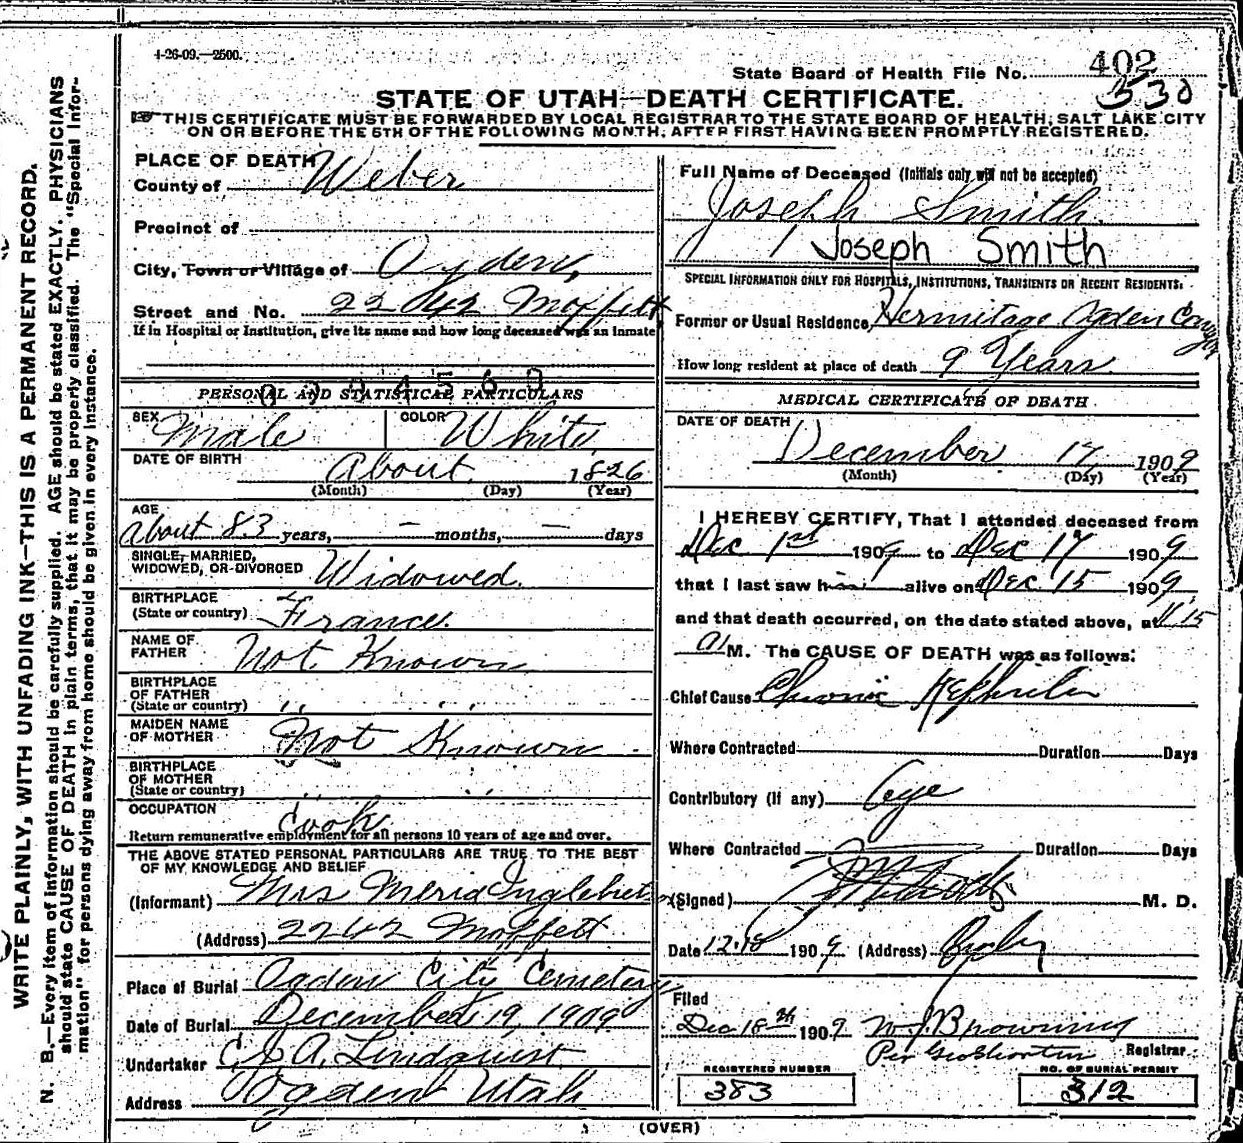 4-26-09.—2500.
402
State Board of Health File No. 330
STATE OF UTAH—DEATH CERTIFICATE.
THIS CERTIFICATE MUST BE FORWARDED BY LOCAL REGISTRAR TO THE STATE BOARD OF HEALTH, SALT LAKE CITY
ON OR BEFORE THE 5TH OF THE FOLLOWING MONTH, AFTER FIRST HAVING BEEN PROMPTLY REGISTERED.
WRITE PLAINLY, WITH UNFADING INK—THIS IS A PERMANENT RECORD.
N. B.—Every item of information should be carefully supplied. AGE should be stated EXACTLY. PHYSICIANS
should state CAUSE OF DEATH in plain terms, that it may be properly classified. The "Special Infor-
mation" for persons dying away from home should be given in every instance.
PLACE OF DEATH
County of Weber
Precinct of
City, Town or Village of Ogden,
Street and No. 2242 Moffett
If in Hospital or Institution, give its name and how long deceased was an inmate
PERSONAL AND STATISTICAL PARTICULARS
SEX Male COLOR White
DATE OF BIRTH About 1826
(Month) (Day) (Year)
AGE
About 83 years, — months, — days
SINGLE, MARRIED,
WIDOWED, OR DIVORCED Widowed.
BIRTHPLACE
(State or country) France.
NAME OF
FATHER Not Known
BIRTHPLACE
OF FATHER
(State or country) " "
MAIDEN NAME
OF MOTHER Not Known
BIRTHPLACE
OF MOTHER
(State or country) " "
OCCUPATION Cook
Return remunerative employment for all persons 10 years of age and over.
THE ABOVE STATED PERSONAL PARTICULARS ARE TRUE TO THE BEST
OF MY KNOWLEDGE AND BELIEF
(Informant) Mrs Meria
(Address) 2242 Moffett
Place of Burial Ogden City Cemetery
Date of Burial December 19, 1909
Undertaker C. J. A. Lindquist
Address Ogden Utah
Full Name of Deceased (Initials only will not be accepted)
Joseph Smith
Joseph Smith
SPECIAL INFORMATION ONLY FOR HOSPITALS, INSTITUTIONS, TRANSIENTS OR RECENT RESIDENTS.
Former or Usual Residence, Hermitage Ogden Canyon
How long resident at place of death 9 Years
MEDICAL CERTIFICATE OF DEATH
DATE OF DEATH
December 17 1909
(Month) (Day) (Year)
I HEREBY CERTIFY, That I attended deceased from
Dec 1st 1909 to Dec 17 1909
that I last saw him alive on Dec 15 1909,
and that death occurred, on the date stated above, at 15
M. The CAUSE OF DEATH was as follows:
Chief Cause Chronic Nephritis
Where Contracted Duration Days
Contributory (if any) Age
Where Contracted Duration Days
(Signed) M. D.
Date 12-18 1909 (Address) Ogden
Filed
Dec 18th 1909 W. J. Browning
Per Registrar
REGISTERED NUMBER
383
NO. OF BURIAL PERMIT
312
(OVER)